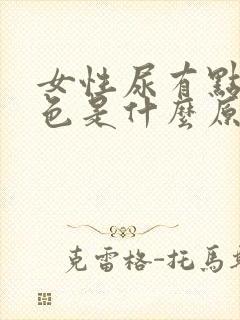 女性尿有點
色是什麼原
克雷格-托馬斯